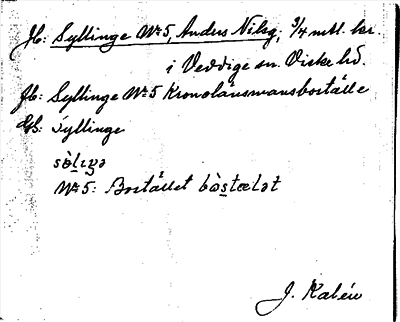 Jb: Syllinge Nr 5, Anders Nilsg, 3/4 mtl. kr.
i Veddige sn. Viske hd.
Jb: Syllinge Nr 5 Kronolänsmansboställe
GS: Syllinge
sø̀lıŋə
Nr 5: Bostället bòstælət
J. Kalén